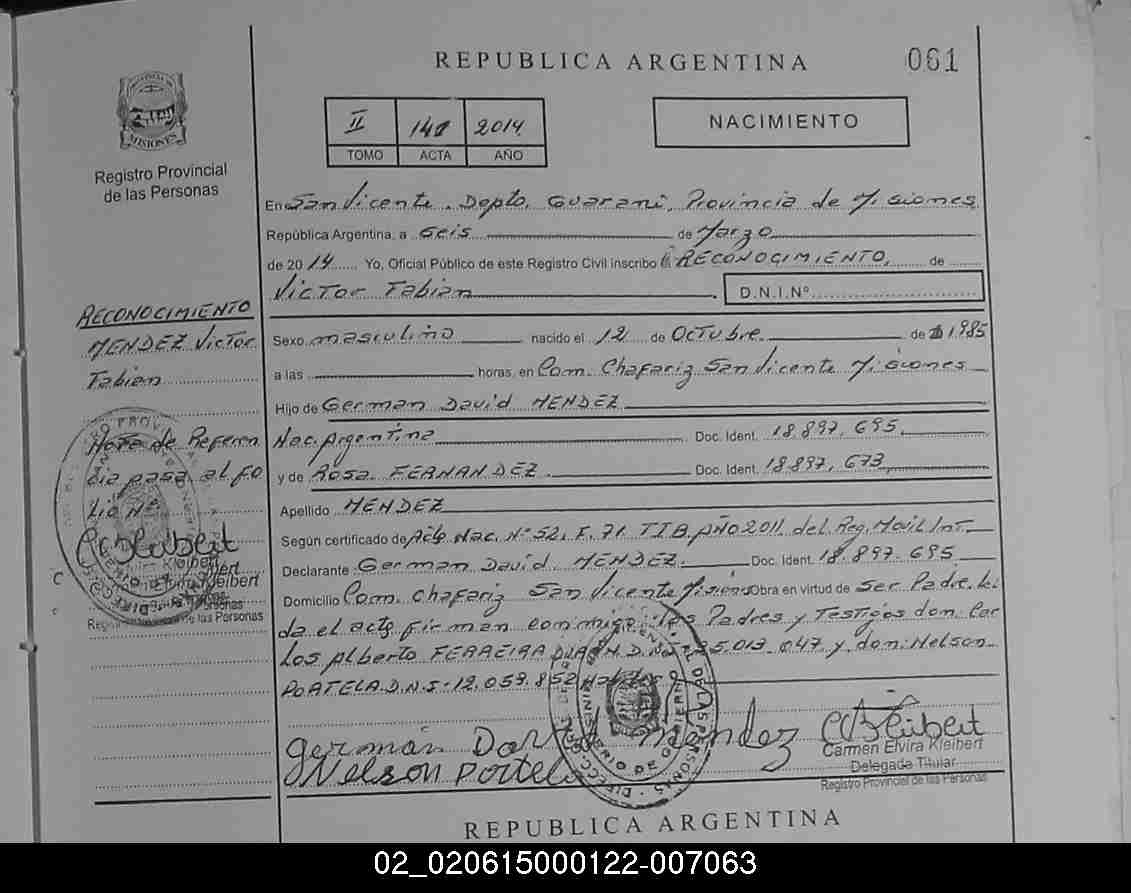 REPUBLICA ARGENTINA
061
II 141 2014
TOMO ACTA AÑO
NACIMIENTO
PROVINCIA DE
MISIONES
Registro Provincial
de las Personas
En San Vicente. Depto. Guarani, Provincia de Misiones
República Argentina, a Seis de Marzo
de 2014 Yo, Oficial Público de este Registro Civil inscribo RECONOCIMIENTO, de
Victor Fabian D.N.I.Nº
Sexo masculino nacido el 12 de Octubre de 1985
a las horas, en Com. Chafariz San Vicente Misiones
Hijo de German David MENDEZ
Nac. Argentina Doc. Ident. 18.897.695
y de Rosa FERNANDEZ Doc. Ident. 18.897.673
Apellido MENDEZ
Según certificado de Acta Nac. Nº 52. F. 71. TIB. AÑO 2011. del Reg. Movil Int.
Declarante German David MENDEZ. Doc. Ident. 18.897.695
Domicilio Com. Chafariz San Vicente Misiones Obra en virtud de Ser Padre. Lei
da el acta firman conmigo los Padres y Testigos don Car
los Alberto FERREIRA DURAN. D.N.I. 013.047 y don Nelson
PORTELA. D.N.I-12.059.852
germán David méndez
Nelson Portela
Carmen Elvira Kleibert
Delegada Titular
Registro Provincial de las Personas
RECONOCIMIENTO
MENDEZ Victor
Fabian
Nota de Referen
cia pasa al fo
lio Nº
Kleibert
de las Personas
REPUBLICA ARGENTINA
02_020615000122-007063